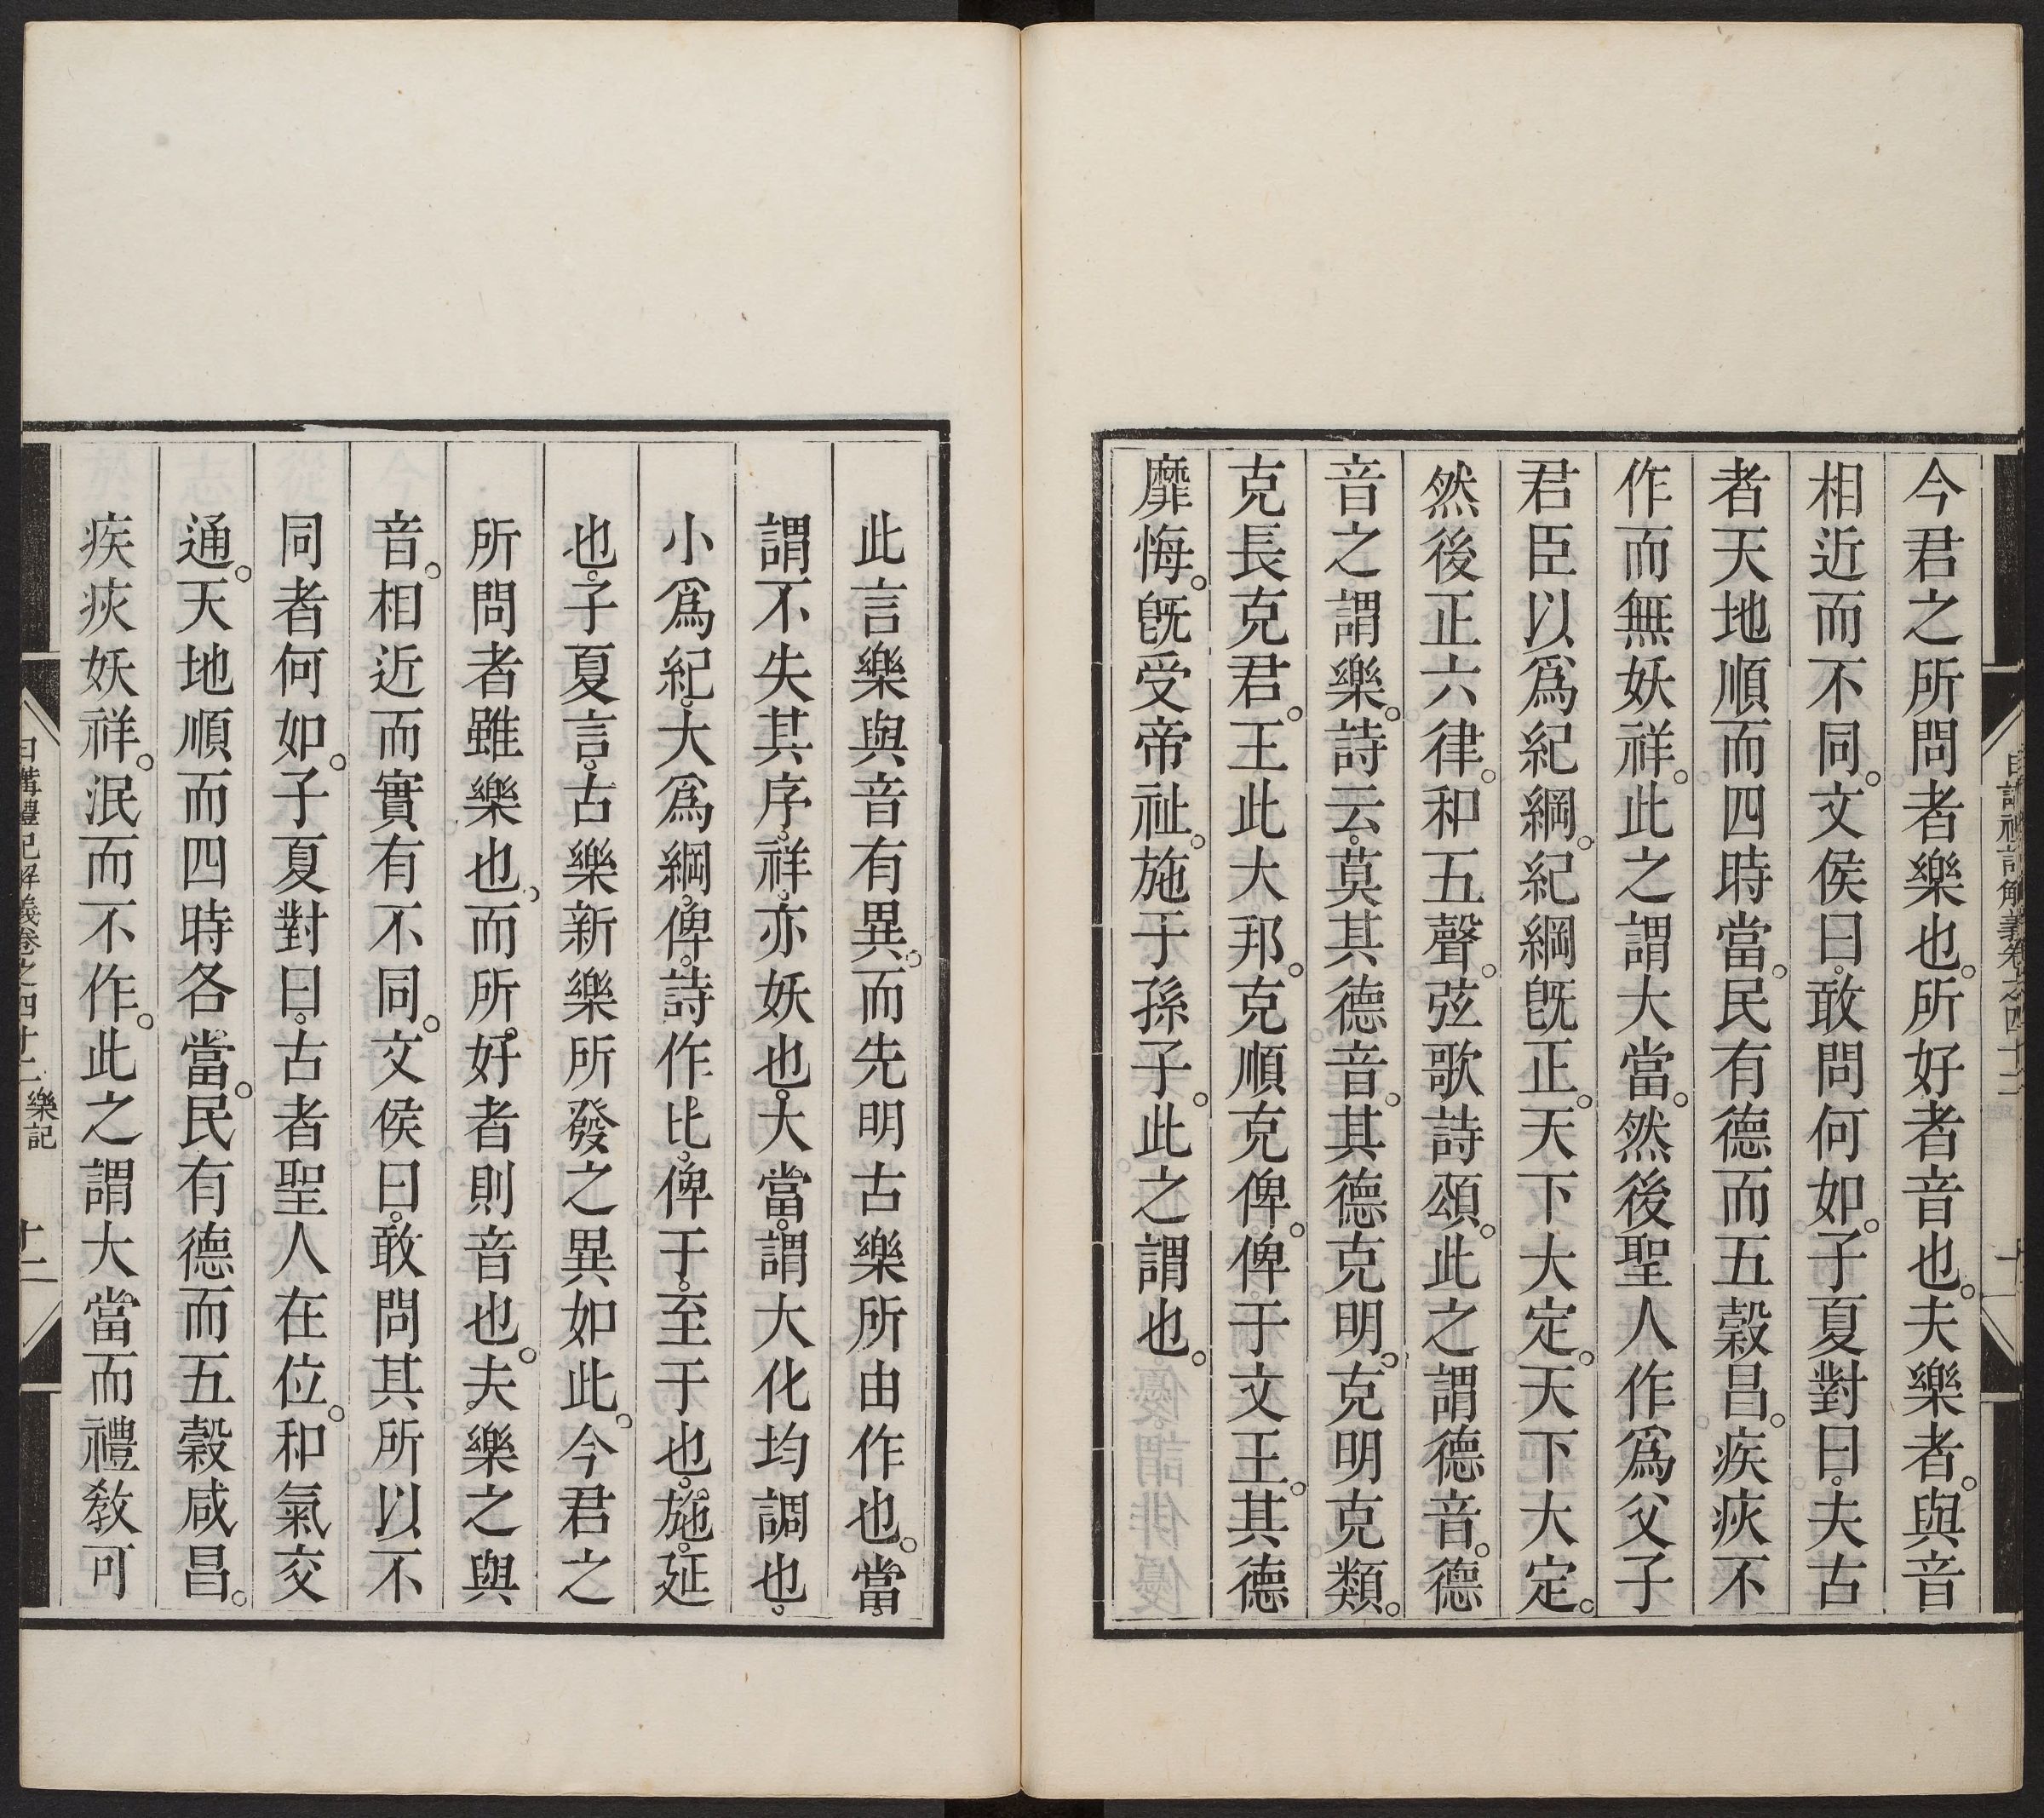 今君之所問者樂也。所好者音也。夫樂者。與音
相近而不同。文侯曰。敢問何如。子夏對曰。夫古
者天地順而四時當。民有德而五穀昌。疾疢不
作而無妖祥。此之謂大當。然後聖人作爲父子
君臣以爲紀綱。紀綱旣正。天下大定。天下大定。
然後正六律。和五聲。弦歌詩頌。此之謂德音。德
音之謂樂。詩云。莫其德音。其德克明。克明克類。
克長克君。王此大邦。克順克俾。俾于文王。其德
靡悔。旣受帝祉。施于孫子。此之謂也。
此言樂與音有異。而先明古樂所由作也。當。
謂不失其序。祥。亦妖也。大當。謂大化均調也。
小爲紀。大爲綱。俾。詩作比。俾于。至于也。施。延
也。子夏言。古樂新樂所發之異如此。今君之
所問者雖樂也。而所好者則音也。夫樂之與
音。相近而實有不同。文侯曰。敢問其所以不
同者何如。子夏對曰。古者聖人在位。和氣交
通。天地順而四時各當。民有德而五穀咸昌。
疾疢妖祥。泯而不作。此之謂大當而禮敎可
日講禮記解義卷之四十二 樂記 十二